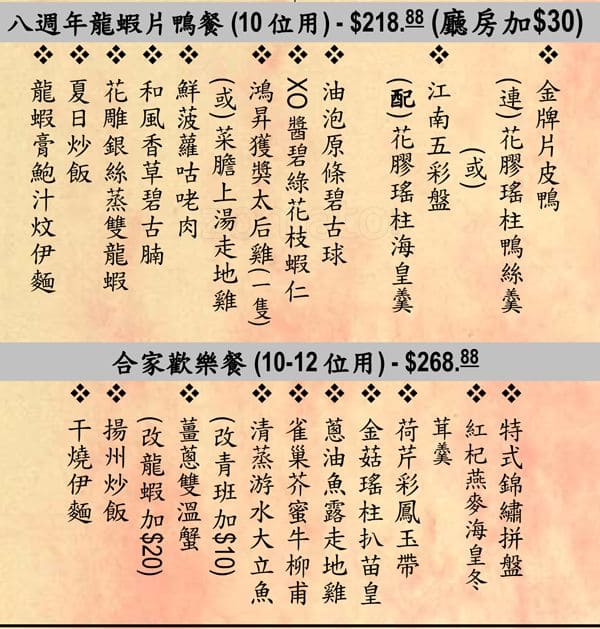 八週年龍蝦片鴨餐 (10 位用) - $218.88 (廳房加$30)
❖金牌片皮鴨
(連)花膠瑤柱鴨絲羹
(或)
❖江南五彩盤
(配)花膠瑤柱海皇羹
❖油泡原條碧古球
❖XO醬碧綠花枝蝦仁
❖鴻昇獲獎太后雞(一隻)
(或)菜膽上湯走地雞
❖鮮菠蘿咕咾肉
❖和風香草碧古腩
❖花雕銀絲蒸雙龍蝦
❖夏日炒飯
❖龍蝦膏鮑汁炆伊麵
合家歡樂餐 (10-12 位用) - $268.88
❖特式錦繡拼盤
❖紅杞燕麥海皇冬
茸羹
❖荷芹彩鳳玉帶
❖金菇瑤柱扒苗皇
❖蔥油魚露走地雞
❖雀巢芥蜜牛柳甫
❖清蒸游水大立魚
(改青班加$10)
❖薑蔥雙溫蟹
(改龍蝦加$20)
❖揚州炒飯
❖干燒伊麵